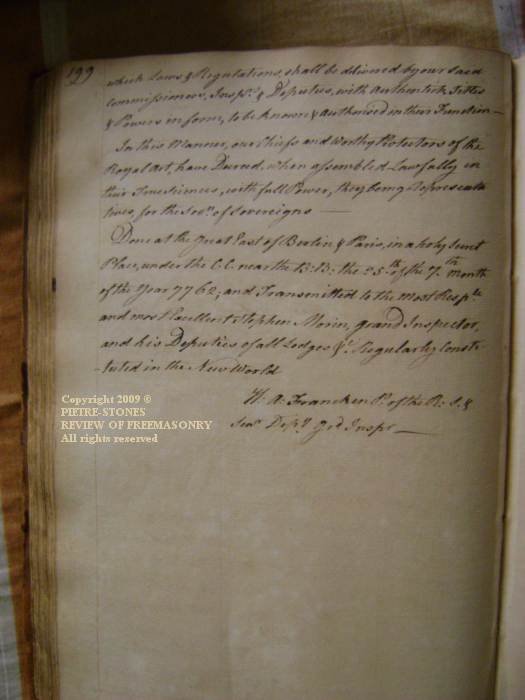 199
which Laws & Regulations, shall be delivered by our said
Commissioners, Insp.rs & Deputies, with Authentick Titles
& Powers in form, to be known & authorised in their Function —
In this Manner, our Chiefs and Worthy Protectors of the
Royal Art, have Decreed, when assembled Lawfully in
their Functions, with full Power, they being Representa
tives, for the Sov.n of Sovereigns —
Done at the Great East of Berlin & Paris, in a holy
Place, under the C.C. near the B:B: the 25.th of the 7.th month
of the Year 7762; and Transmitted to the most Resp.le
and most Excellent Stephen Morin, grand Inspector,
and his Deputies of all Lodges &c Regularly Consti
-tuted in the New World
H: A: Francken P. of the R: S. &
Sen.r Dep.y Gr.d Insp.r —
Copyright 2009 ©
PIETRE-STONES
REVIEW OF FREEMASONRY
All rights reserved